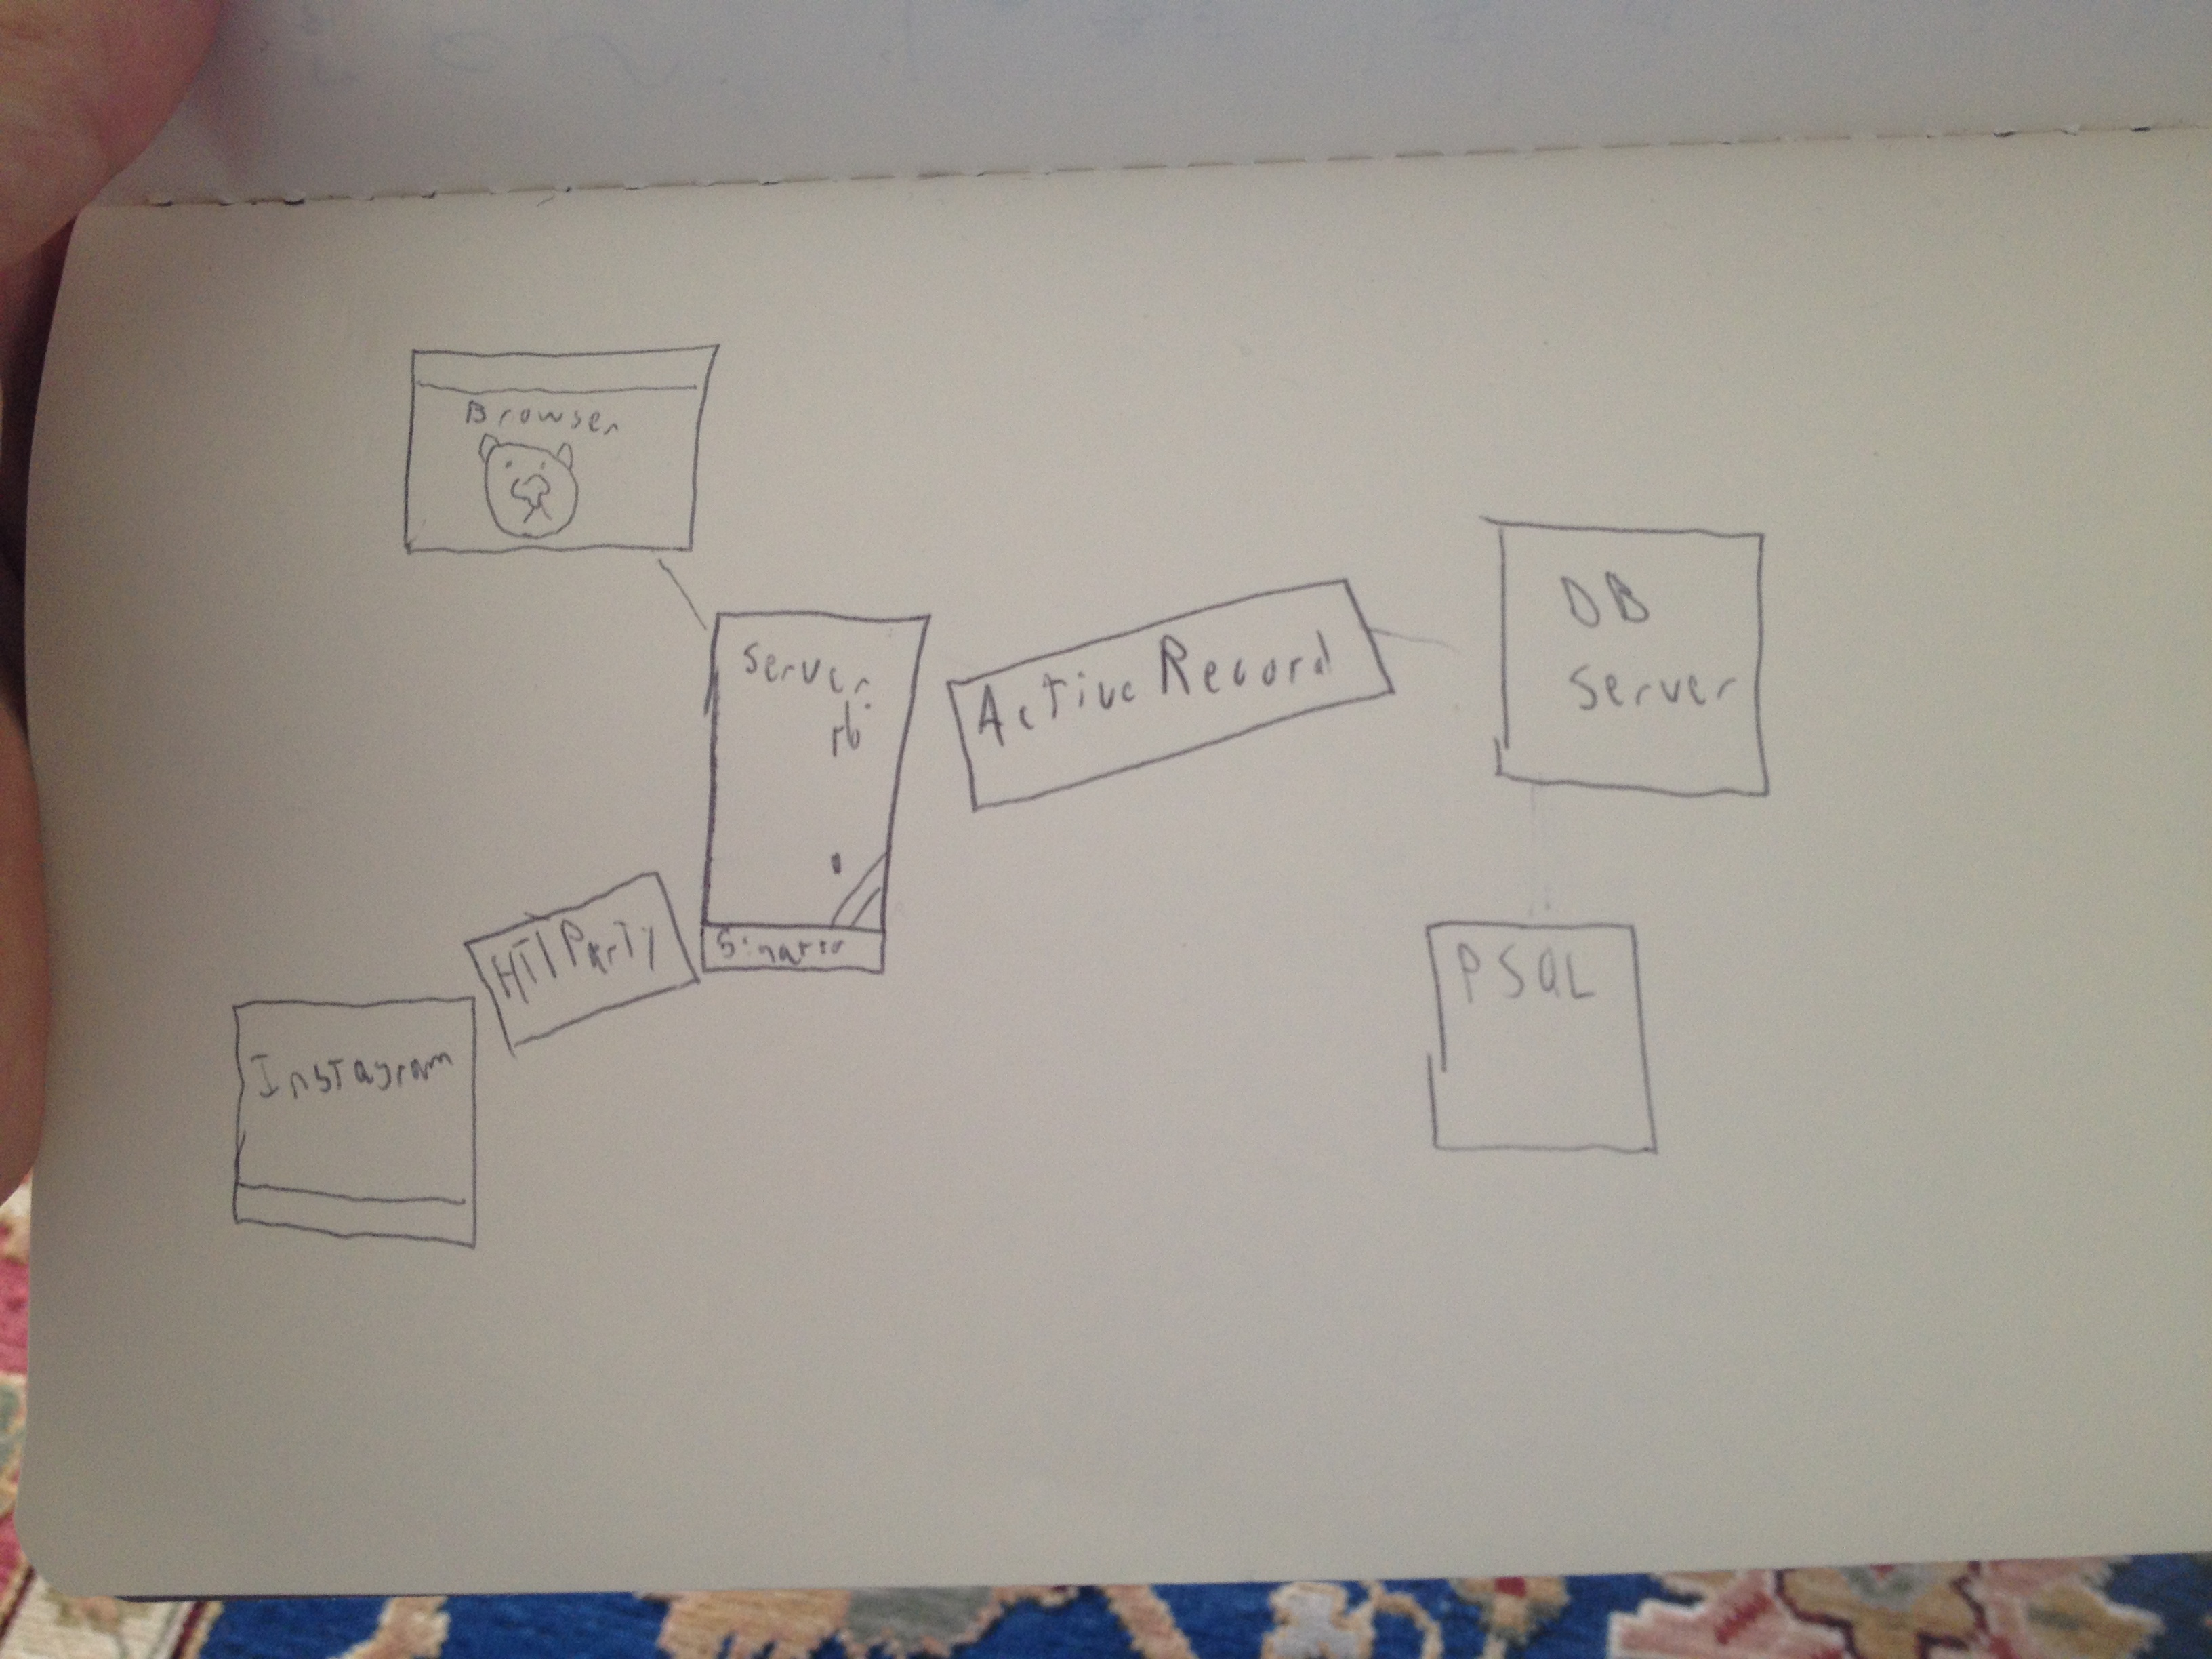 Browser
Server.
rb
Sinatra
Active Record
DB
Server
HTTParty
Instagram
PSQL